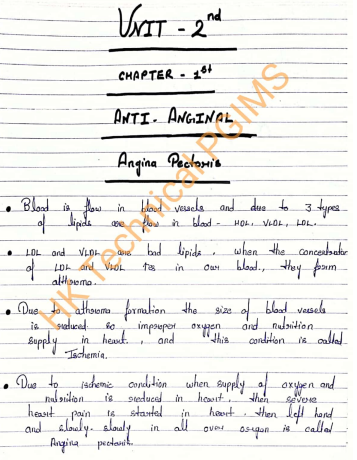 UNIT - 2nd
CHAPTER - 1st
ANTI - ANGINAL
Angina Pectoris
• Blood is flow in blood vessels and due to 3 types
of lipids are flow in blood - HDL, VLDL, LDL.
• LDL and VLDL are bad lipids. when the concentrator
of LDL and VLDL ties in our blood, they form
athroma.
• Due to athroma formation the size of blood vessels
is reduced so improper oxygen and nutrition
supply in heart. and this condition is called
Ischemia.
• Due to ischemic condition when supply of oxygen and
nutrition is reduced in heart. then severe
heart pain is started in heart. then left hand
and slowly-slowly in all over organ is called
Angina pectoris.
HK Technical PGIMS